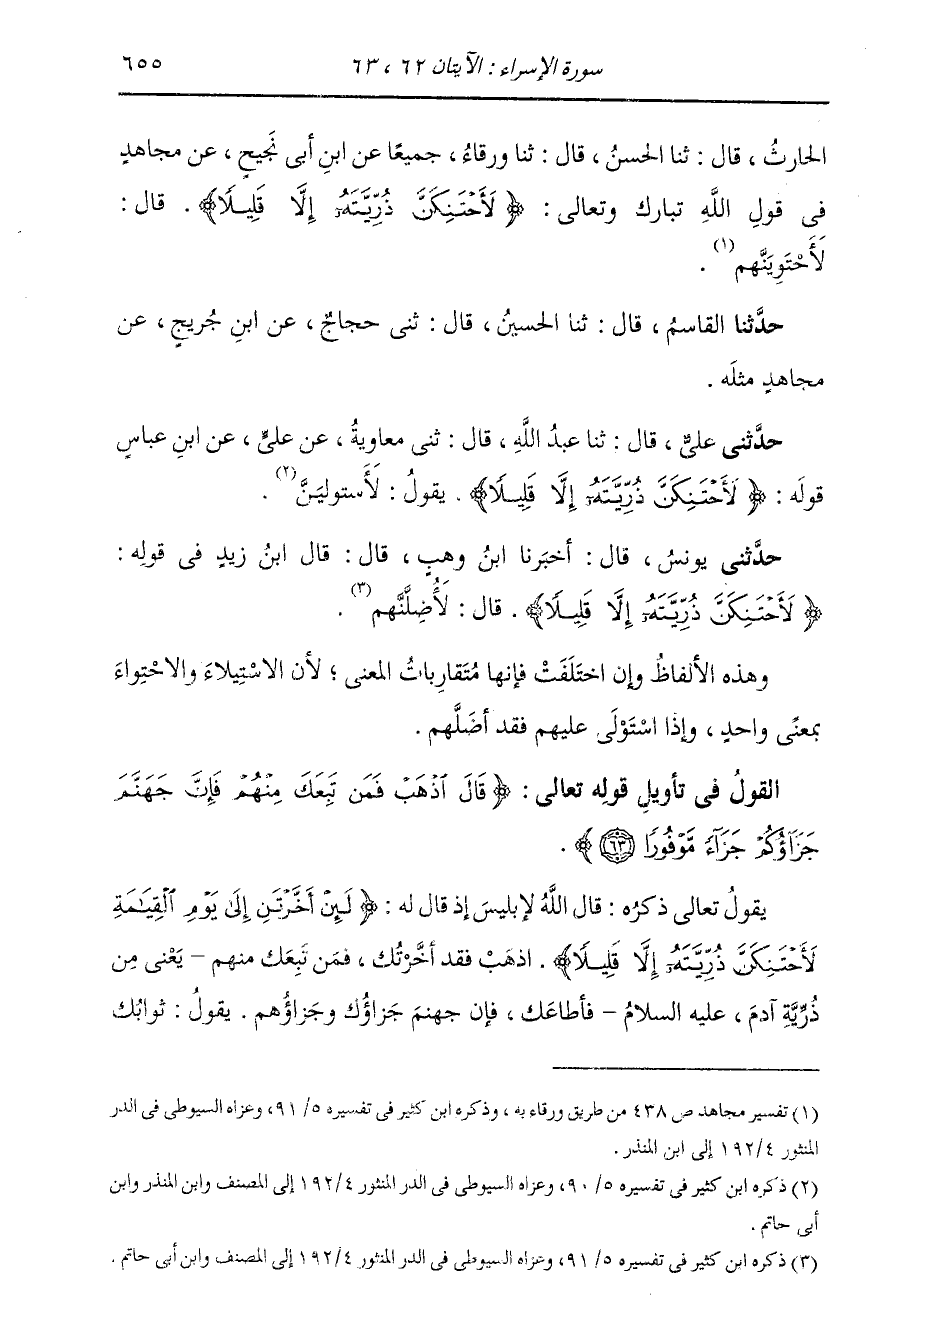 سورة الإسراء : الآيتان ٦٢ ، ٦٣ ٦٥٥
الحارثُ ، قال : ثنا الحسنُ ، قال : ثنا ورقاءُ ، جميعًا عن ابنِ أبى نَجيحٍ ، عن مجاهدٍ
فى قولِ اللَّهِ تبارك وتعالى : ﴿ لَأَحْتَنِكَنَّ ذُرِّيَّتَهُۥٓ إِلَّا قَلِيلًا ﴾ . قال :
لَأَحْتَوِيَنَّهم (١) .
حدَّثنا القاسمُ ، قال : ثنا الحسينُ ، قال : ثنى حجاجٌ ، عن ابنِ جُريجٍ ، عن
مجاهدٍ مثلَه .
حدَّثنى علىٌّ ، قال : ثنا عبدُ اللَّهِ ، قال : ثنى معاويةُ ، عن علىٍّ ، عن ابنِ عباسٍ
قولَه : ﴿ لَأَحْتَنِكَنَّ ذُرِّيَّتَهُۥٓ إِلَّا قَلِيلًا ﴾ . يقولُ : لَأَستولينَّ (٢) .
حدَّثنى يونسُ ، قال : أخبَرنا ابنُ وهبٍ ، قال : قال ابنُ زيدٍ فى قولِه :
﴿ لَأَحْتَنِكَنَّ ذُرِّيَّتَهُۥٓ إِلَّا قَلِيلًا ﴾ . قال : لَأُضِلَّنَّهم (٣) .
وهذه الألفاظُ وإن اختلَفَتْ فإنها مُتَقارِباتُ المعنى ؛ لأن الاسْتِيلاءَ والاحْتِواءَ
بمعنًى واحدٍ ، وإذا اسْتَوْلَى عليهم فقد أضَلَّهم .
القولُ فى تأويلِ قولِه تعالى : ﴿ قَالَ ٱذْهَبْ فَمَن تَبِعَكَ مِنْهُمْ فَإِنَّ جَهَنَّمَ
جَزَآؤُكُمْ جَزَآءً مَّوْفُورًا ﴿٦٣﴾ ﴾ .
يقولُ تعالى ذكرُه : قال اللَّهُ لإبليسَ إذ قال له : ﴿ لَئِنْ أَخَّرْتَنِ إِلَىٰ يَوْمِ ٱلْقِيَٰمَةِ
لَأَحْتَنِكَنَّ ذُرِّيَّتَهُۥٓ إِلَّا قَلِيلًا ﴾ . اذهَبْ فقد أخَّرْتُك ، فمَن تَبِعَك منهم – يَعْنى مِن
ذُرِّيَّةِ آدمَ ، عليه السلامُ – فأطاعَك ، فإن جهنمَ جَزاؤُك وجَزاؤُهم . يقولُ : ثوابُك
(١) تفسير مجاهد ص ٤٣٨ من طريق ورقاء به ، وذكره ابن كثير فى تفسيره ٥/ ٩١، وعزاه السيوطى فى الدر
المنثور ١٩٢/٤ إلى ابن المنذر .
(٢) ذكره ابن كثير فى تفسيره ٥/ ٩٠، وعزاه السيوطى فى الدر المنثور ١٩٢/٤ إلى المصنف وابن المنذر وابن
أبى حاتم .
(٣) ذكره ابن كثير فى تفسيره ٥/ ٩١، وعزاه السيوطى فى الدر المنثور ١٩٢/٤ إلى المصنف وابن أبى حاتم .